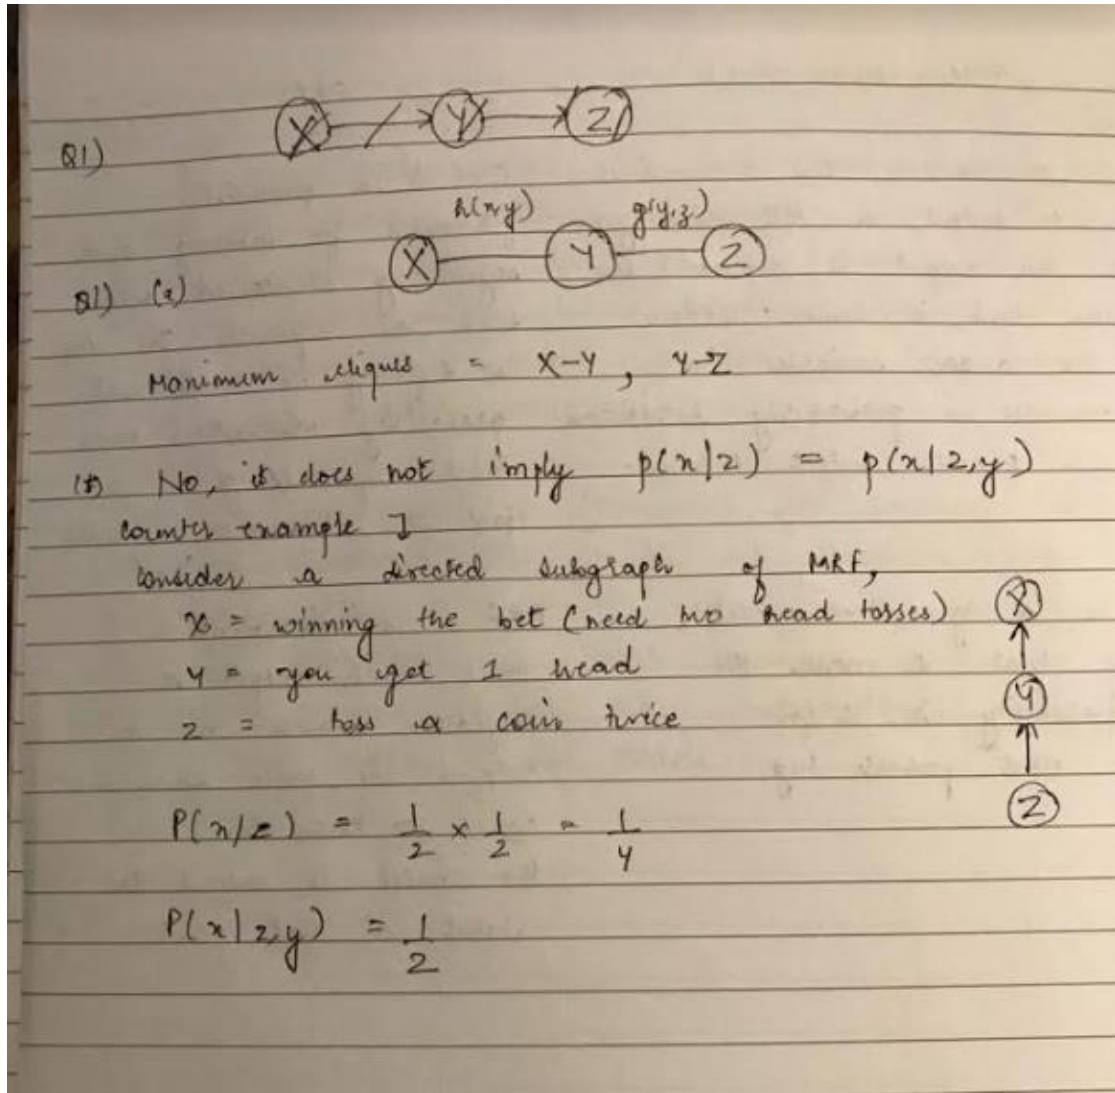 X Y Z
Q1)
h(x,y) g(y,z)
X Y Z
Q1) (a)
Maximum cliques = X-Y, Y-Z
No, it does not imply p(x|z) = p(x|z,y)
counter example
consider a directed subgraph of MRF,
x = winning the bet (need two head tosses) X
y = you get 1 head Y
z = toss a coin twice
Z
P(x/z) = 1/2 × 1/2 = 1/4
P(x|z,y) = 1/2